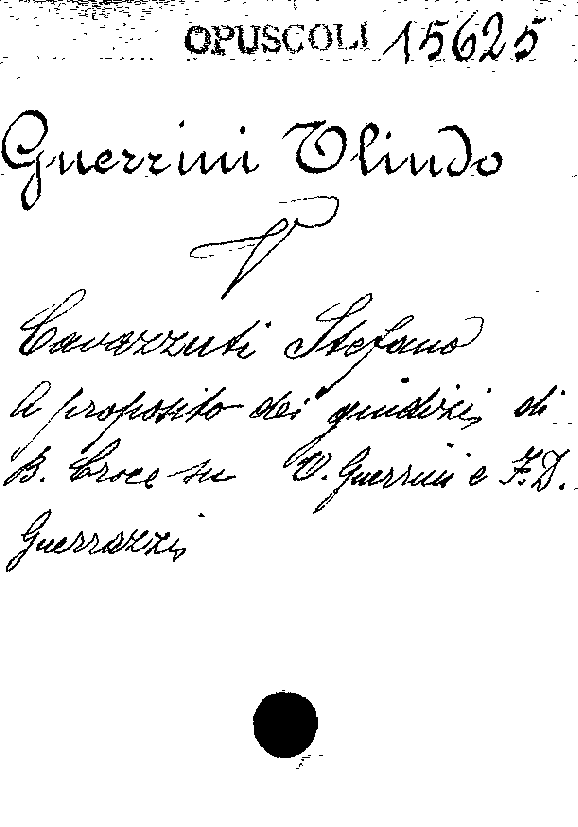 OPUSCOLI 15625
Guerrini Olindo
V
Cavazzuti Stefano
A proposito dei giudizi di
B. Croce su O. Guerrini e F. D.
Guerrazzi